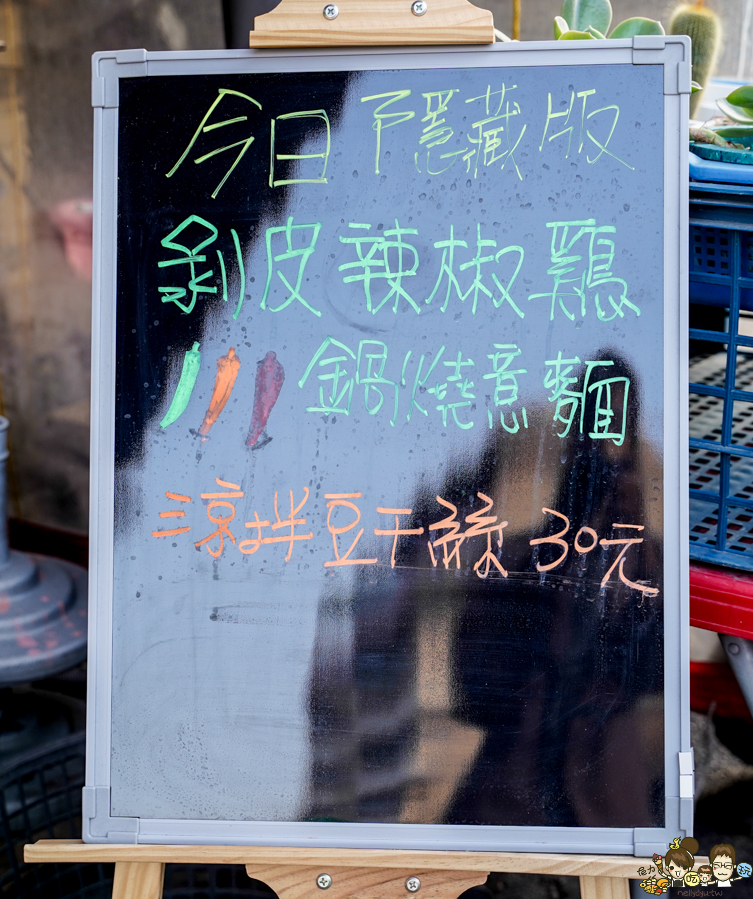 今日隱藏版
剝皮辣椒雞
鍋燒意麵
涼拌豆干絲 30元
nellydyu.tw